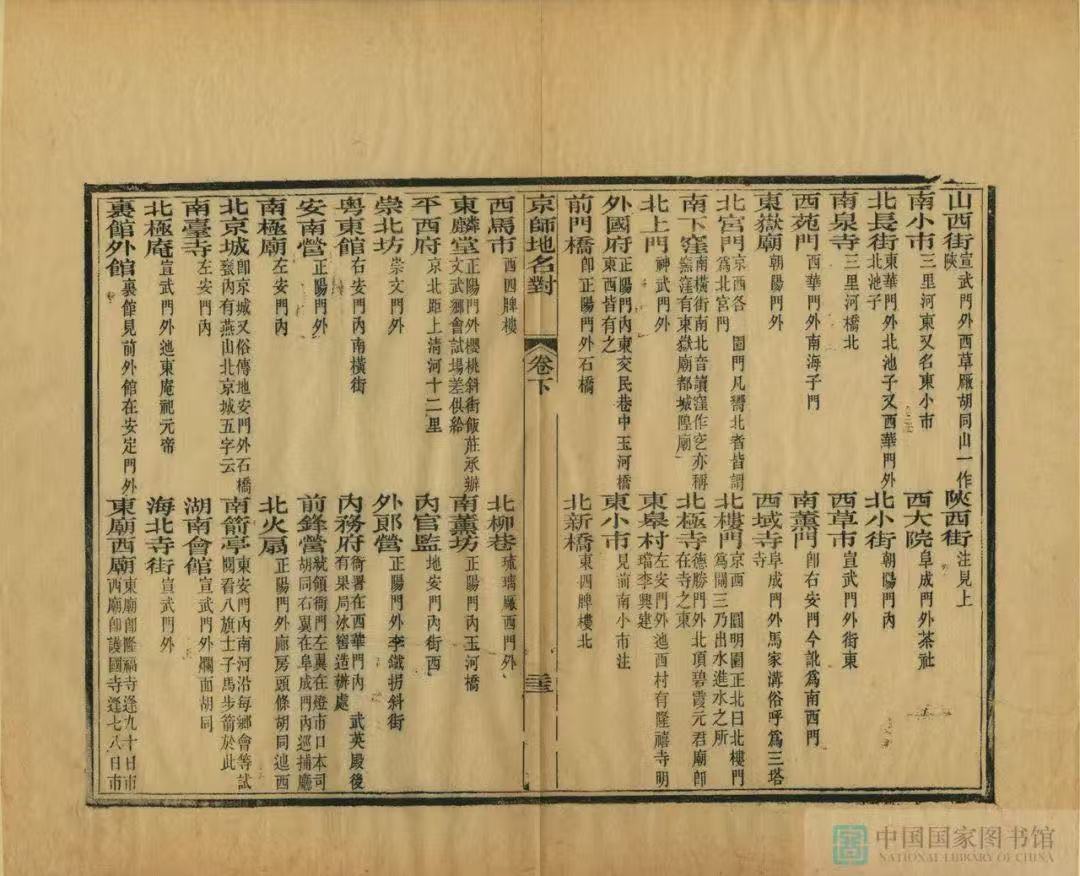 山西街宣武門外西草廠胡同山一作陝 陝西街注見上
南小市三里河東又名東小市 西大院阜成門外茶社
北長街東華門外北池子又西華門外北池子 北小街朝陽門內
南泉寺三里河橋北 西草市宣武門外街東
西苑門西華門外南海子門 南薰門卽右安門今訛為南西門
東嶽廟朝陽門外 西域寺阜成門外馬家溝俗呼為三塔寺
北宮門京西各 園門凡嚮北者皆謂為北宮門 北樓門京西 圓明園正北曰北樓門為閘三乃出水進水之所
南下窪南橫街南北音讀窪作窊亦稱窰窪有東嶽廟都城隍廟 北極寺德勝門外北頂碧霞元君廟卽在寺之東
北上門神武門外 東皋村左安門外迤西村有隆禧寺明璫李興建
外國府正陽門內東交民巷中玉河橋東西皆有之 東小市見前南小市注
前門橋卽正陽門外石橋 北新橋東四牌樓北
京師地名對 卷下 三十三
西馬市西四牌樓 北柳巷琉璃廠西門外
東麟堂正陽門外櫻桃斜街飯莊承辦文武鄉會試場差供給 南薰坊正陽門內玉河橋
平西府京北距上清河十二里 內官監地安門內街西
崇北坊崇文門外 外郎營正陽門外李鐵拐斜街
粵東館右安門內南橫街 內務府衙署在西華門內 武英殿後有果局冰窖造辦處
安南營正陽門外 前鋒營統領衙門左翼在燈市口本司胡同右翼在阜成門內巡捕廳
南極廟左安門內 北火扇正陽門外廊房頭條胡同迤西
北京城卽京城又俗傳地安門外石橋甃內有燕山北京城五字云 南箭亭東安門內南河沿每鄉會等試閱看八旗士子馬步箭於此
南臺寺左安門內 湖南會館宣武門外爛面胡同
北極庵宣武門外迤東庵祀元帝 海北寺街宣武門外
裏館外館裏館見前外館在安定門外 東廟西廟東廟卽隆福寺逢九十日市西廟卽護國寺逢七八日市
中国国家图书馆
NATIONAL LIBRARY OF CHINA